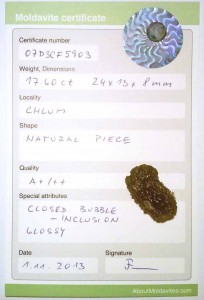 Moldavite certificate
Certificate number
07D3CF5903
Weight, Dimensions
17.60ct 24x13x8mm
Locality
CHLUM
Shape
NATURAL PIECE
Quality
A+/++
Special attributes
CLOSED BUBBLE
- INCLUSION
GLOSSY
Date
Signature
1.11.2013
AboutMoldavites.com